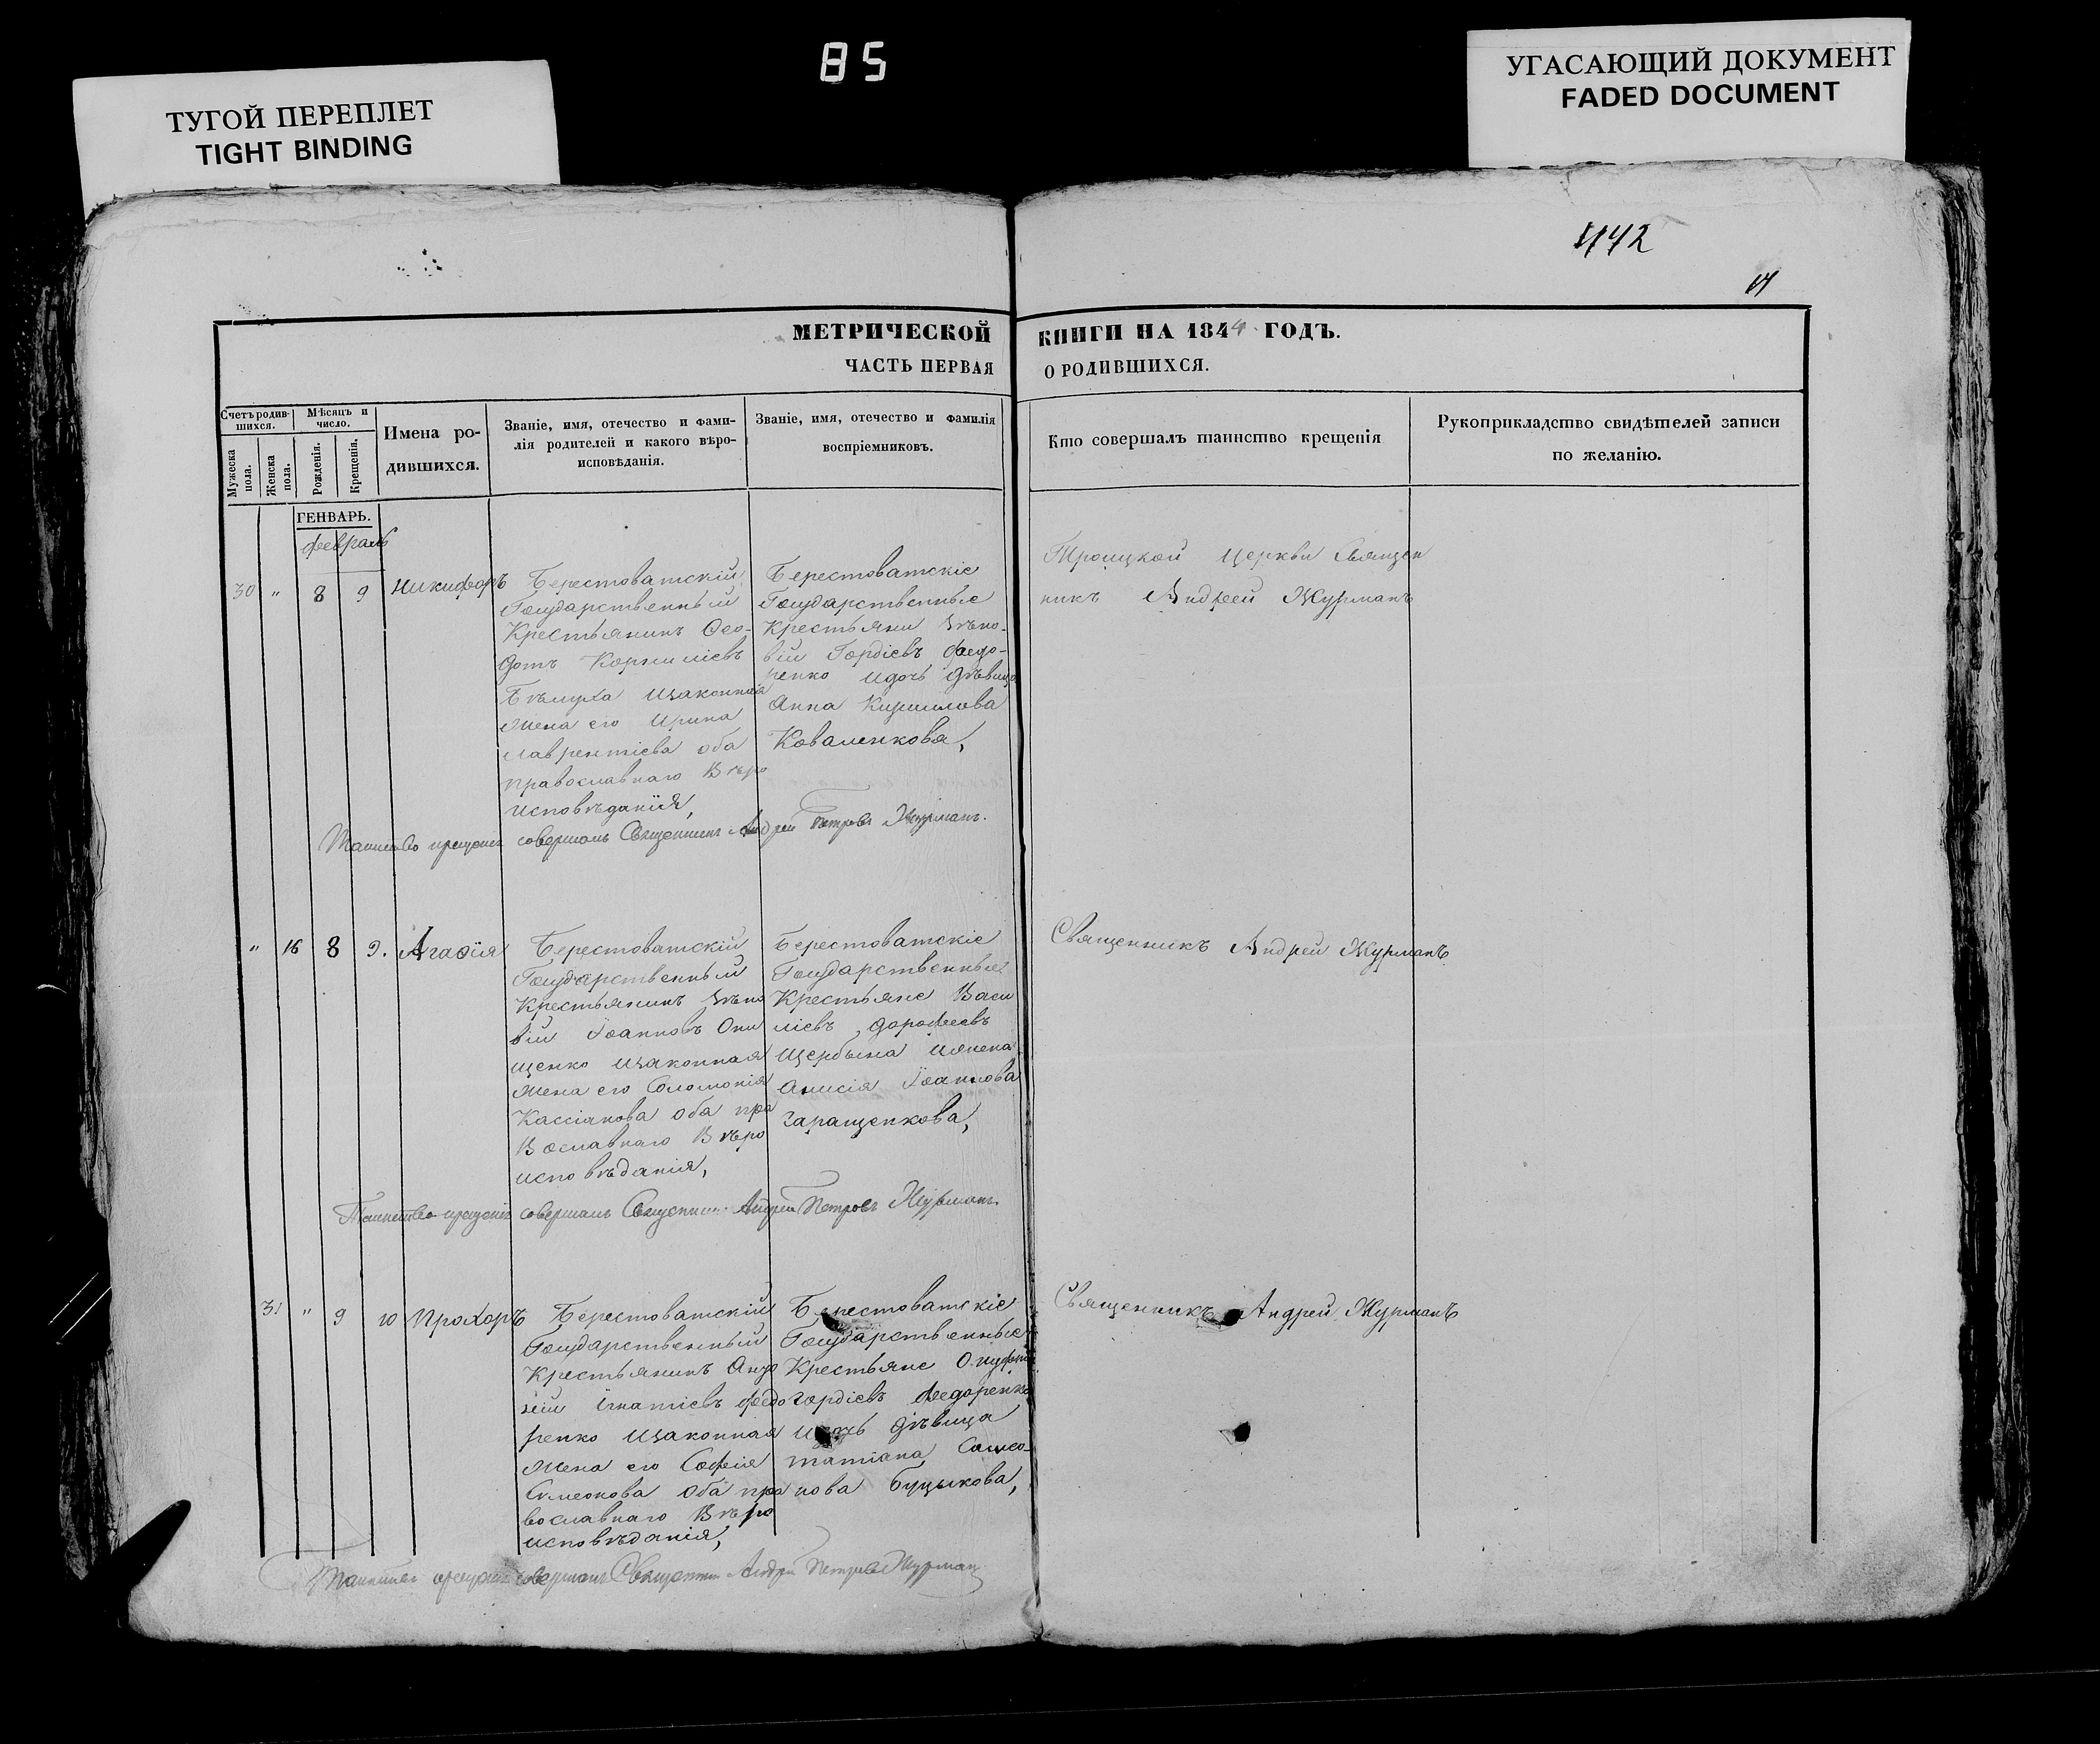 85
ТУГОЙ ПЕРЕПЛЕТ
TIGHT BINDING
УГАСАЮЩИЙ ДОКУМЕНТ
FADED DOCUMENT
442
МЕТРИЧЕСКОЙ КНИГИ НА 1844 ГОДЪ.
ЧАСТЬ ПЕРВАЯ О РОДИВШИХСЯ.
Счетъ родив-
шихся.
Мужеска
пола.
Женска
пола.
Мѣсяцъ и
число.
Рожденія.
Крещенія.
Имена ро-
дившихся.
Званіе, имя, отечество и фами-
лія родителей и какого вѣро-
исповѣданія.
Званіе, имя, отечество и фамилія
воспріемниковъ.
Кто совершалъ таинство крещенія
Рукоприкладство свидѣтелей записи
по желанію.
ГЕНВАРЬ.
февраль
30 " 8 9 Никифоръ
Берестоватскій
Государственный
Крестьянинъ Ѳео-
дотъ Корниліевъ
Бѣлуха изаконная
жена его Ирина
Лаврентіева оба
православнаго Вѣро
исповѣданія,
Берестоватскіе
Государственные
Крестьяни
вій Гордіевъ Федо-
ренко идочь дѣвица
Анна Кириллова
Коваленкова,
Троицкой церкви Священ
никъ Андрей Журманъ
Таинство крещенія совершалъ Священникъ Андрей Петровъ Журманъ.
" 16 8 9. Агафія
Берестоватскій
Государственный
Крестьянинъ
вій Іоанновъ Они
щенко изаконная
жена его Соломонія
Кассіанова оба пра
Вославнаго Вѣро
исповѣданія,
Берестоватскіе
Государственные
Крестьяне Васи
ліевъ Дорофеевъ
Щербына
Анисія Іоаннова
Гаращенкова,
Священникъ Андрей Журманъ
Таинство крещенія совершалъ Священникъ Андрей Петровъ Журманъ.
31 " 9 10 Прохоръ
Берестоватскій
Государственный
Крестьянинъ
ній Ігнатіевъ Федо
ренко изаконная
жена его Софія
Симеонова оба пра
вославнаго Вѣро
исповѣданія,
Берестоватскіе
Государственные
Крестьяне Онуфрій
Гордіевъ Федоренко
идочь дѣвица
татіана Самсо-
нова Буцыкова,
Священникъ Андрей Журманъ
Таинство крещенія совершалъ Священникъ Андрей Петровъ Журманъ